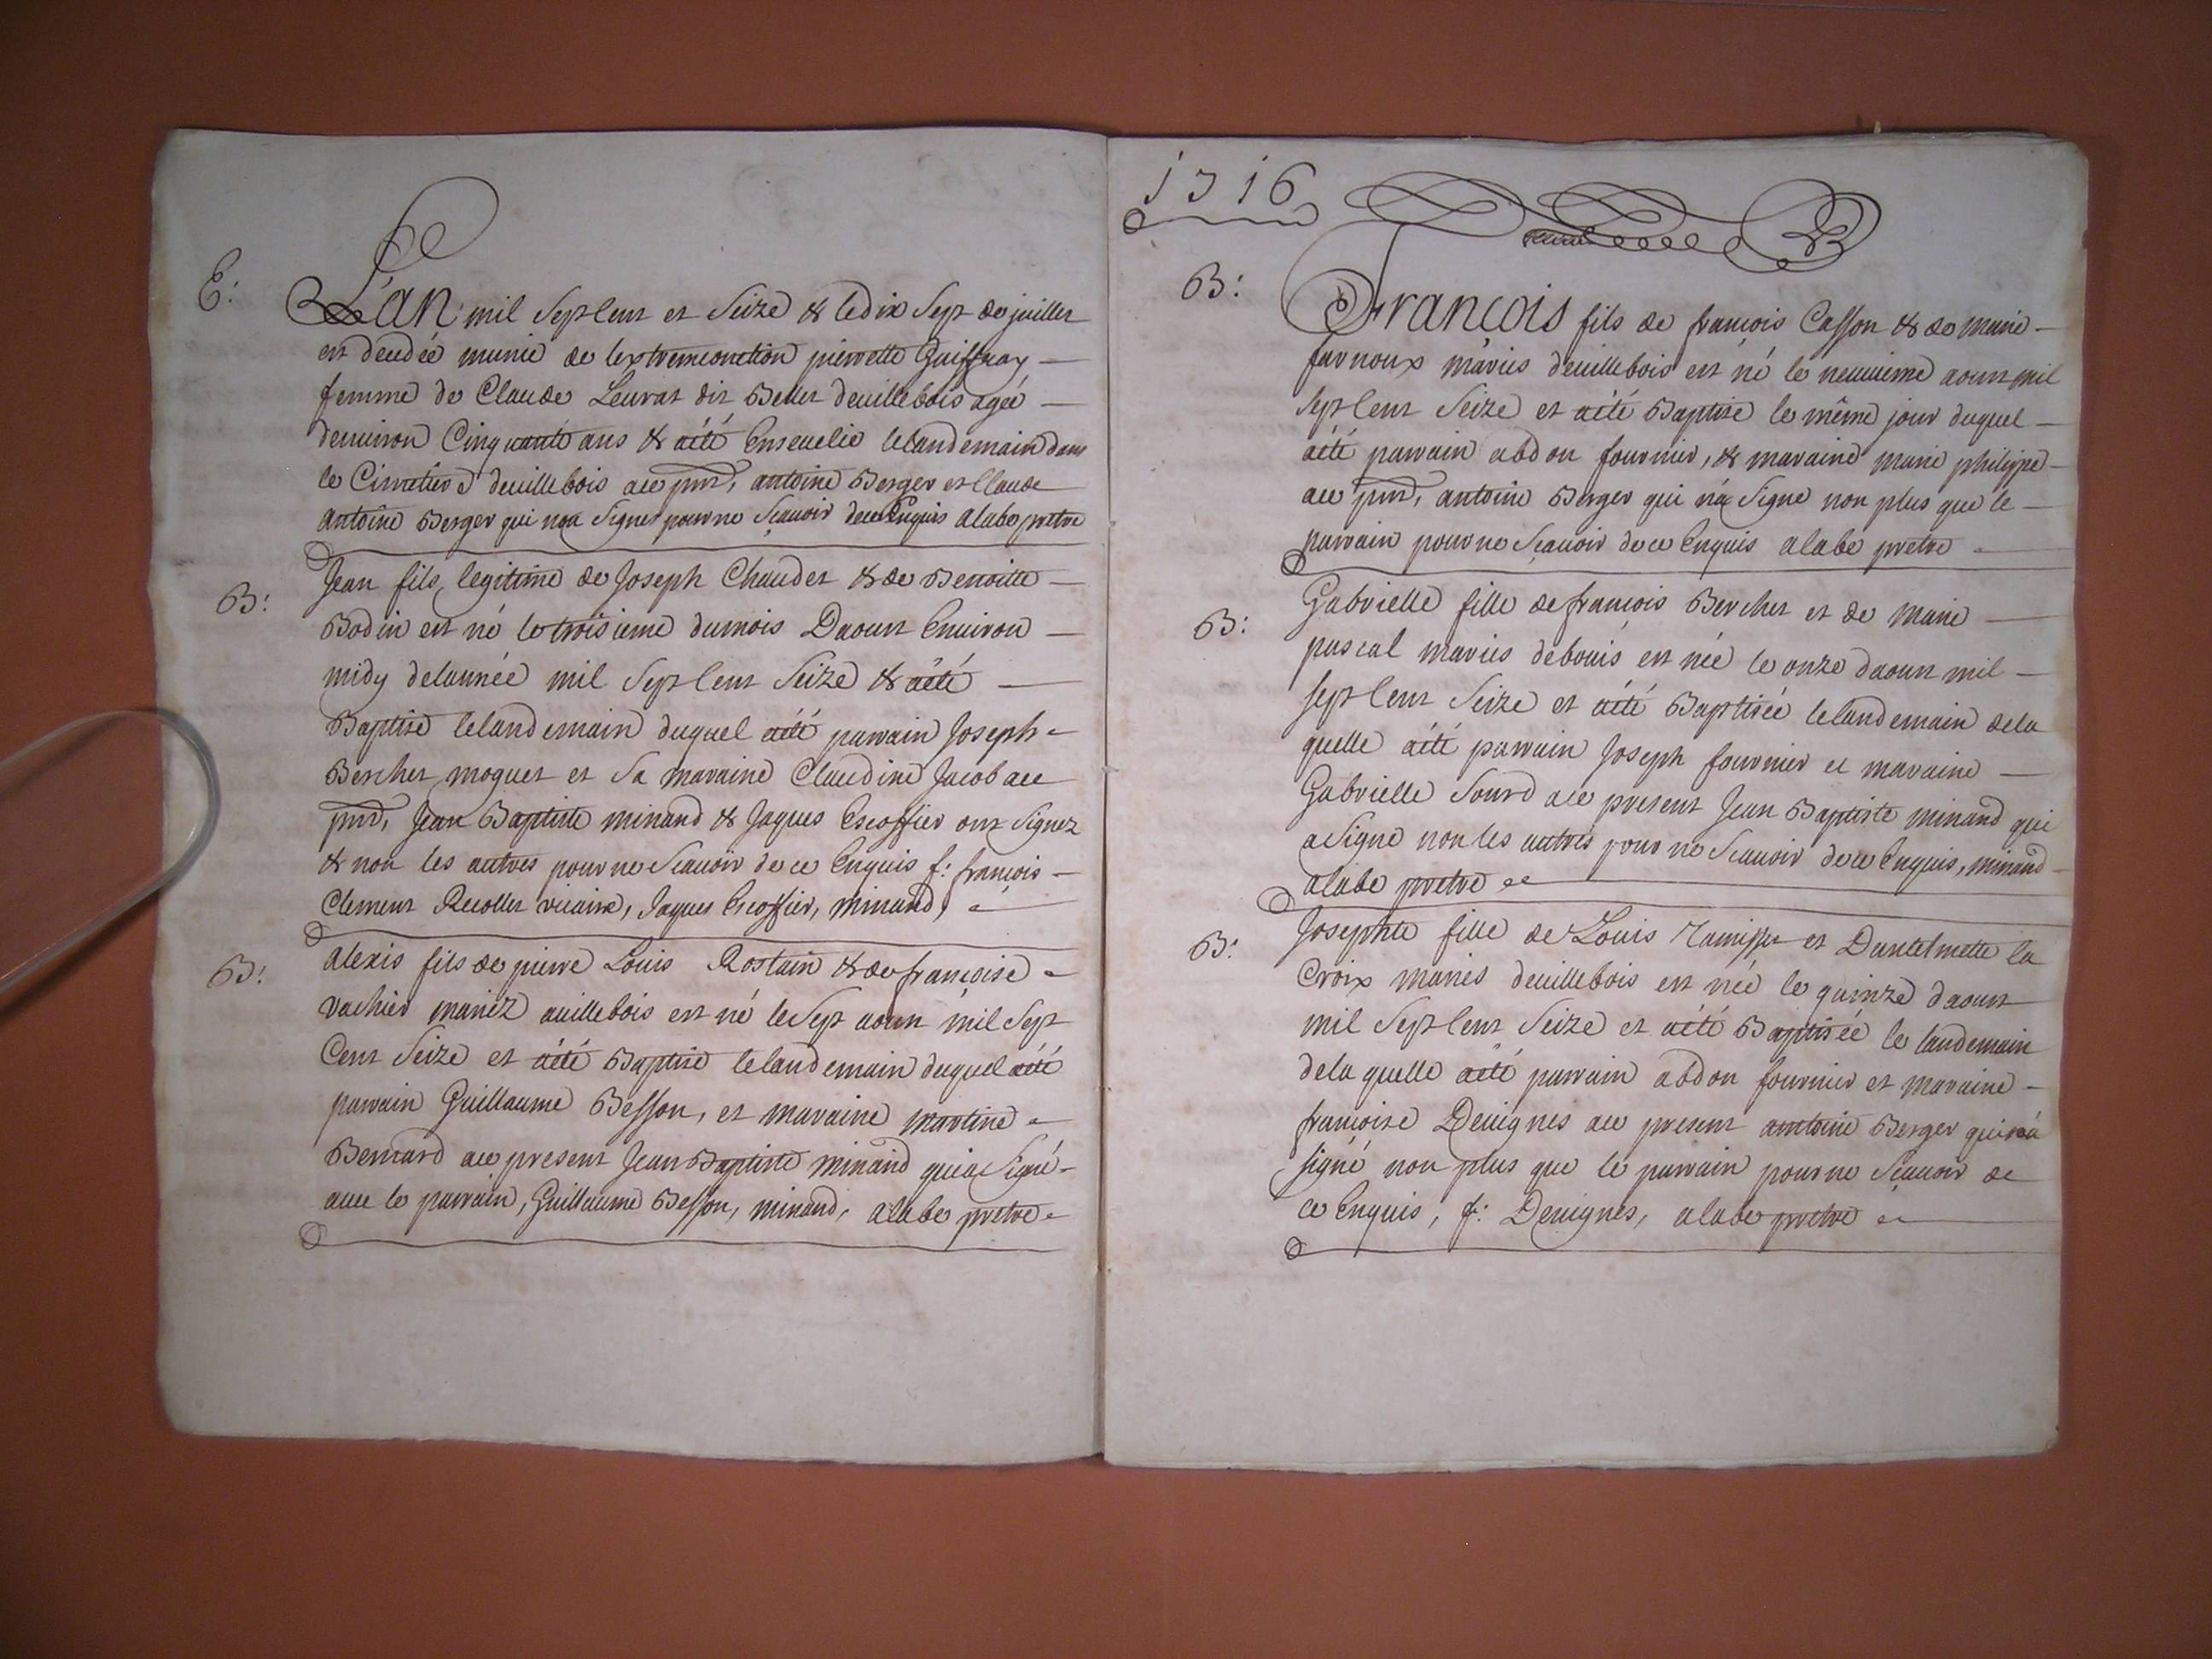 E:
L'an mil Sept Cent et Seize & le dix Sept de juillet
est decedée munie de lextremeonction pierrette Guiffray
femme de Claude Leurat dit Bellet deuillebois ageé
denuiron Cinquante ans & aété Enseuelie lelandemain dans
le Cimetiere deuillebois au pnt, antoine Berger et Claude
antoine Berger qui nont Signes pour ne Sçauoir dece Enquis alabe pretre
B:
Jean fils legitime de Joseph Chaudet & de Benoitte
Bodin est né le troisieme dumois Daoust Enuiron
midy delannée mil Sept Cent Seize & aété
Baptisé lelandemain duquel aété parrain Joseph
Berchet moguet et Sa maraine Claudine Jacob au
pnt, Jean Baptiste minand & Jaques Escoffier ont Signez
& non les autres pour ne Scauoir de ce Enquis f: françois
Clement Recollet vicaire, Jaques Escoffier, minand,
B:
alexis fils de pierre Louis Rostain & de françoise
vachier mariéz auillebois est né le Sept aoust mil Sept
Cent Seize et aété Baptisé lelandemain duquel aété
parrain Guillaume Besson, et maraine martine
Bernard au present Jean Baptiste minand qui a Signé
auec le parrain, Guillaume Besson, minand, alabe pretre
1716
B:
François fils de françois Casson & de marie
farnoux mariés deuillebois est né le neuuieme aoust mil
Sept Cent Seize et aété Baptisé le même jour duquel
aété parrain abdon fournier, & maraine marie philippe
au pnt, antoine Berger qui n'a Signe non plus que le
parrain pour ne Sçauoir de ce Enquis alabe pretre
B:
Gabrielle fille de françois Berchet et de marie
pascal mariés debouis est née le onze daoust mil
Sept Cent Seize et aété Baptisée lelandemain dela
quelle aété parrain Joseph fournier et maraine
Gabrielle Sourd au present Jean Baptiste minand qui
a Signe non les autres pour ne Scauoir de ce Enquis, minand
alabe pretre
B:
Josephte fille de Louis et Dantelmette la
Croix mariés deuillebois est née le quinze daoust
mil Sept Cent Seize et aété Baptisée le landemain
dela quelle aété parrain abdon fournier et maraine
françoise Deuignes au present antoine Berger qui n'a
signé non plus que le parrain pour ne Sçauoir de
ce Enquis, f: Deuignes, alabe pretre